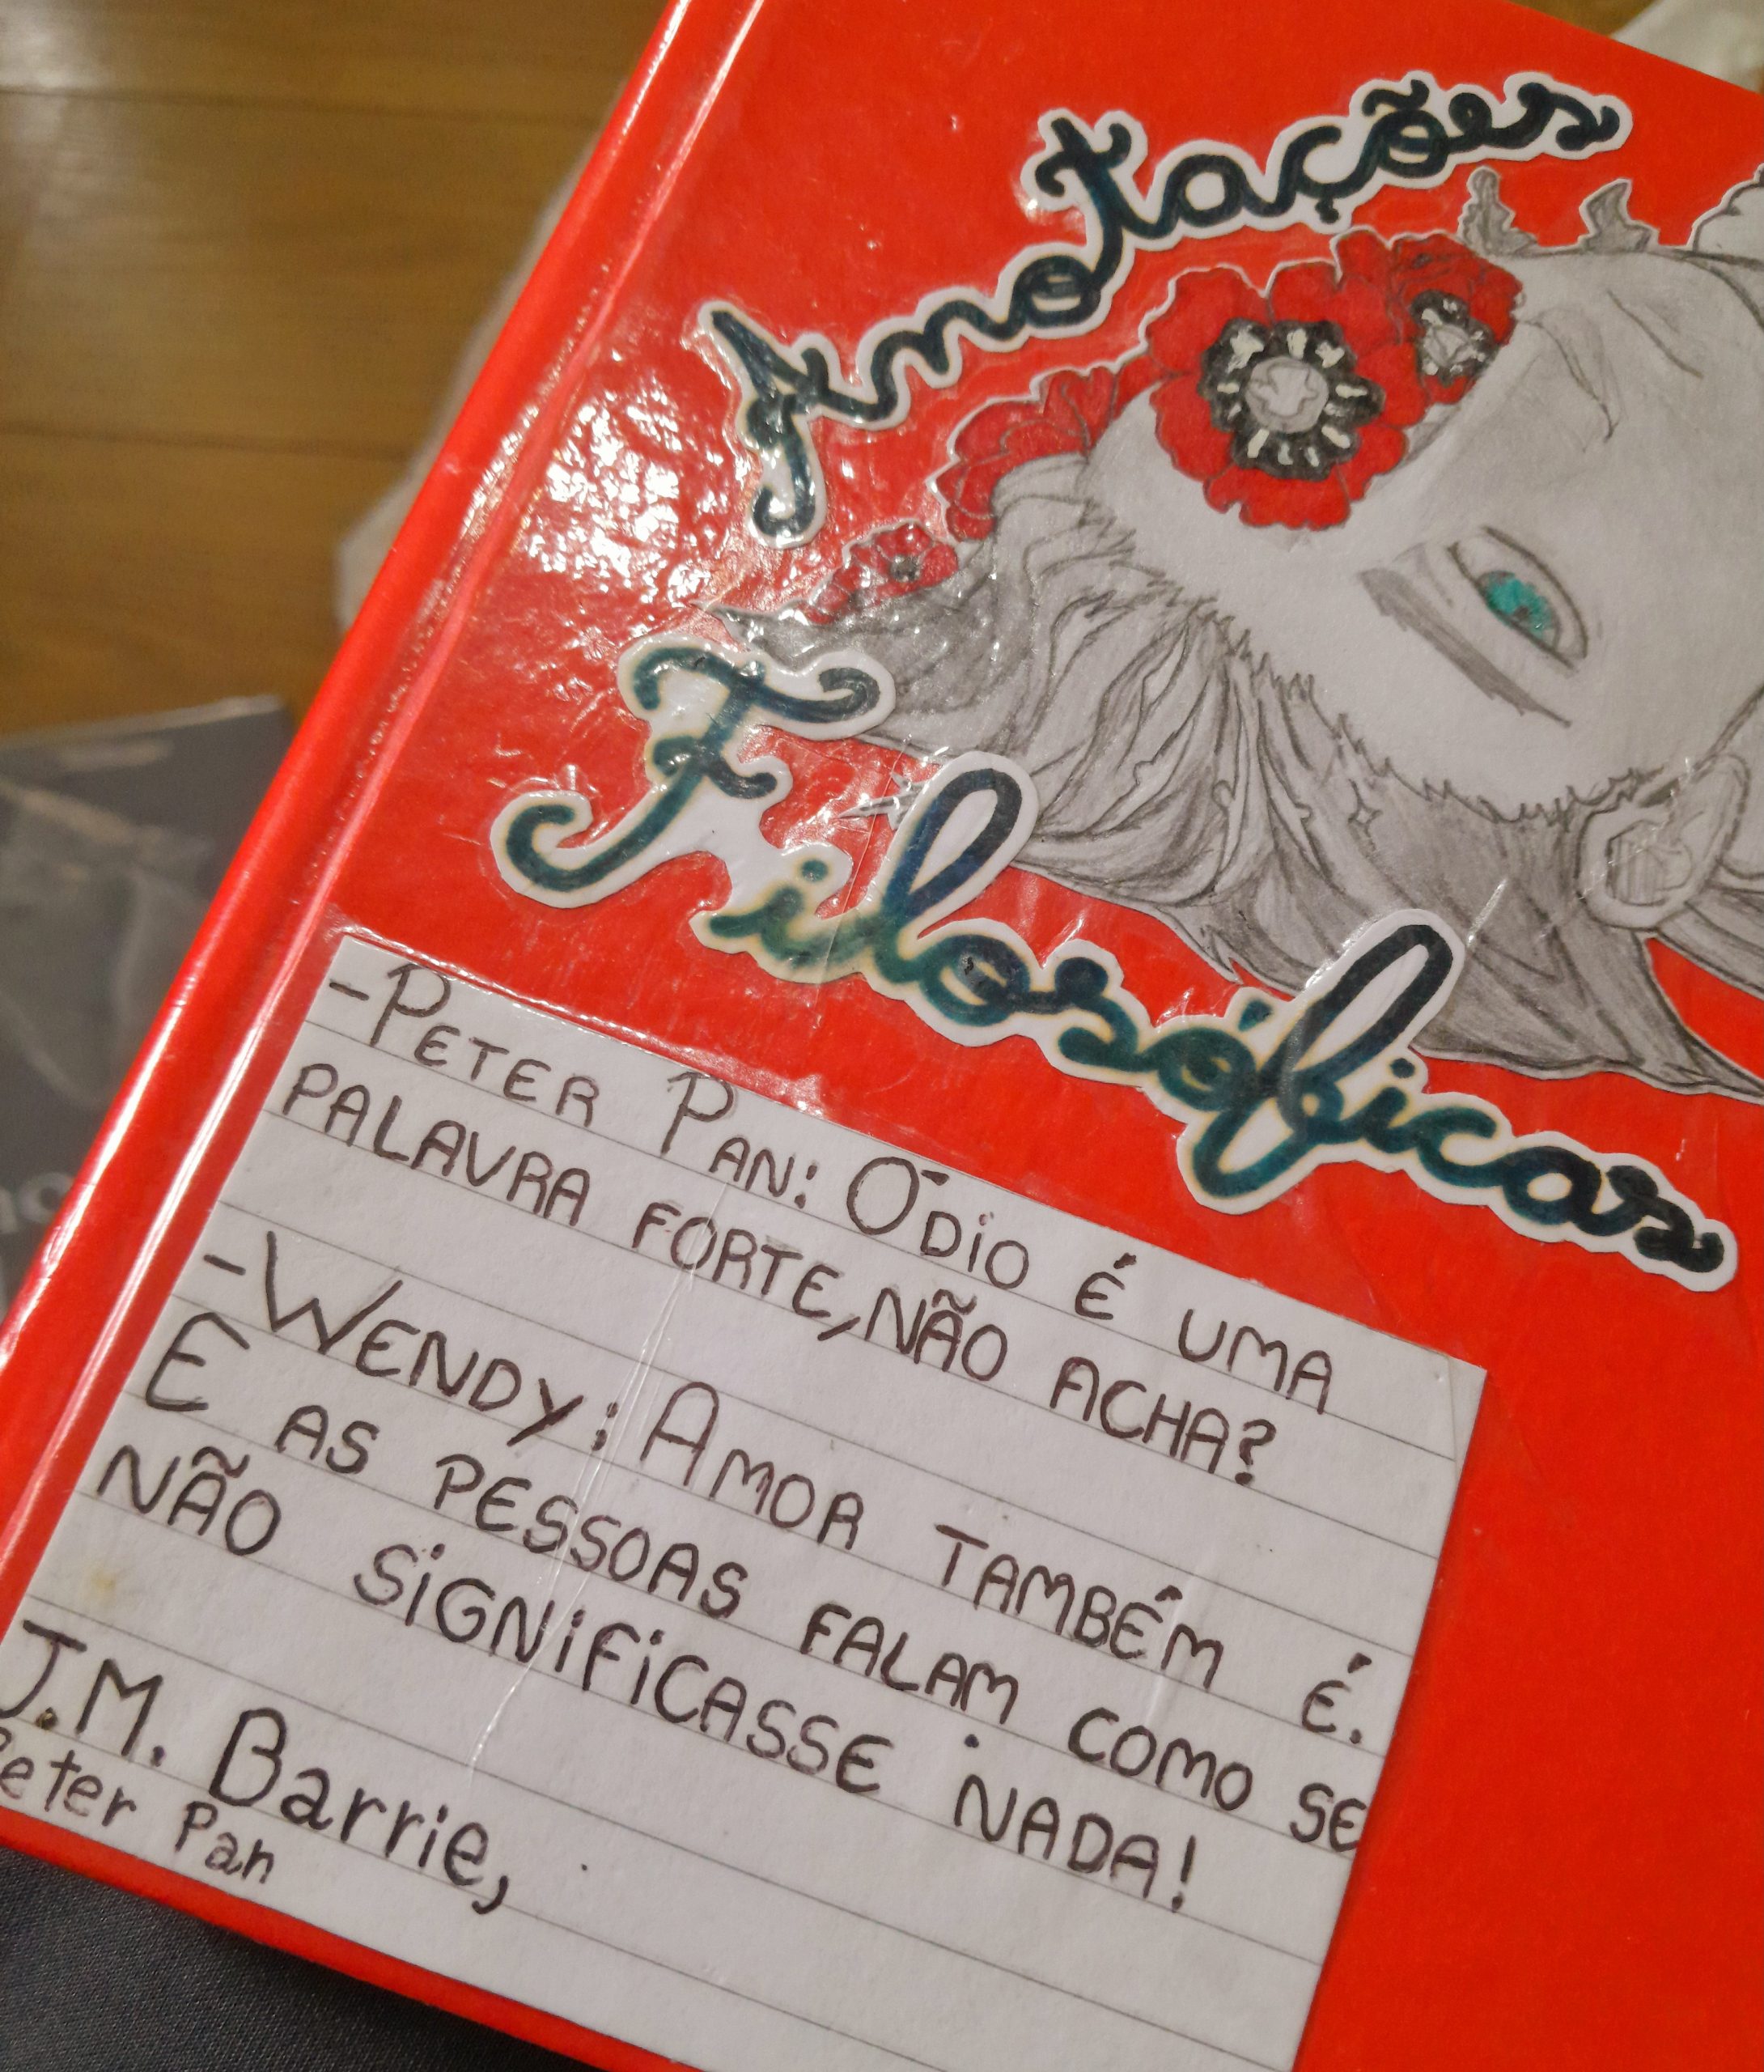 Anotações
Filosóficas
-PETER PAN: ÓDIO É UMA
PALAVRA FORTE, NÃO ACHA?
-WENDY: AMOR TAMBÉM É.
E AS PESSOAS FALAM COMO SE
NÃO SIGNIFICASSE NADA!
J.M. Barrie,
Peter Pan